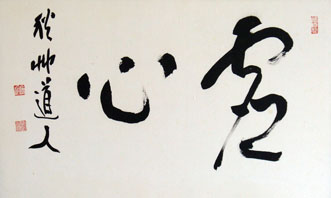 虚心
秋艸道人